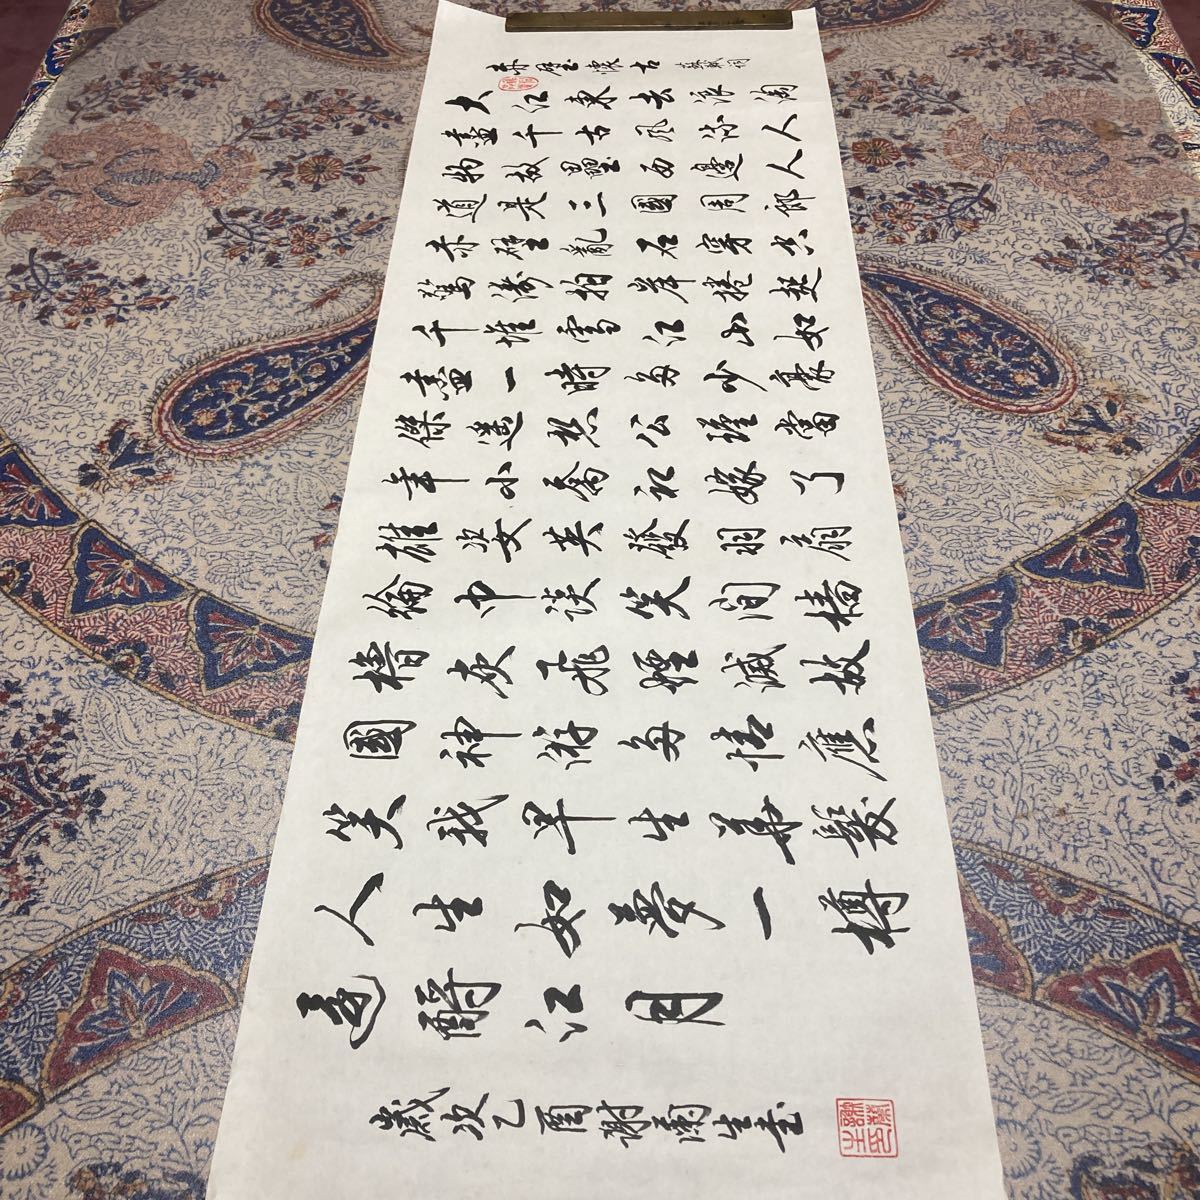 赤壁懷古 蘇軾詞
大江東去浪淘
盡千古風流人
物故壘西邊人
道是三國周郎
赤壁亂石穿空
驚濤拍岸捲起
千堆雪江山如
畫一時多少豪
傑遙想公瑾當
年小喬初嫁了
雄姿英發羽扇
綸巾談笑間檣
櫓灰飛煙滅故
國神游多情應
笑我早生華髮
人生如夢一樽
還酹江月
歲次乙酉謝生書